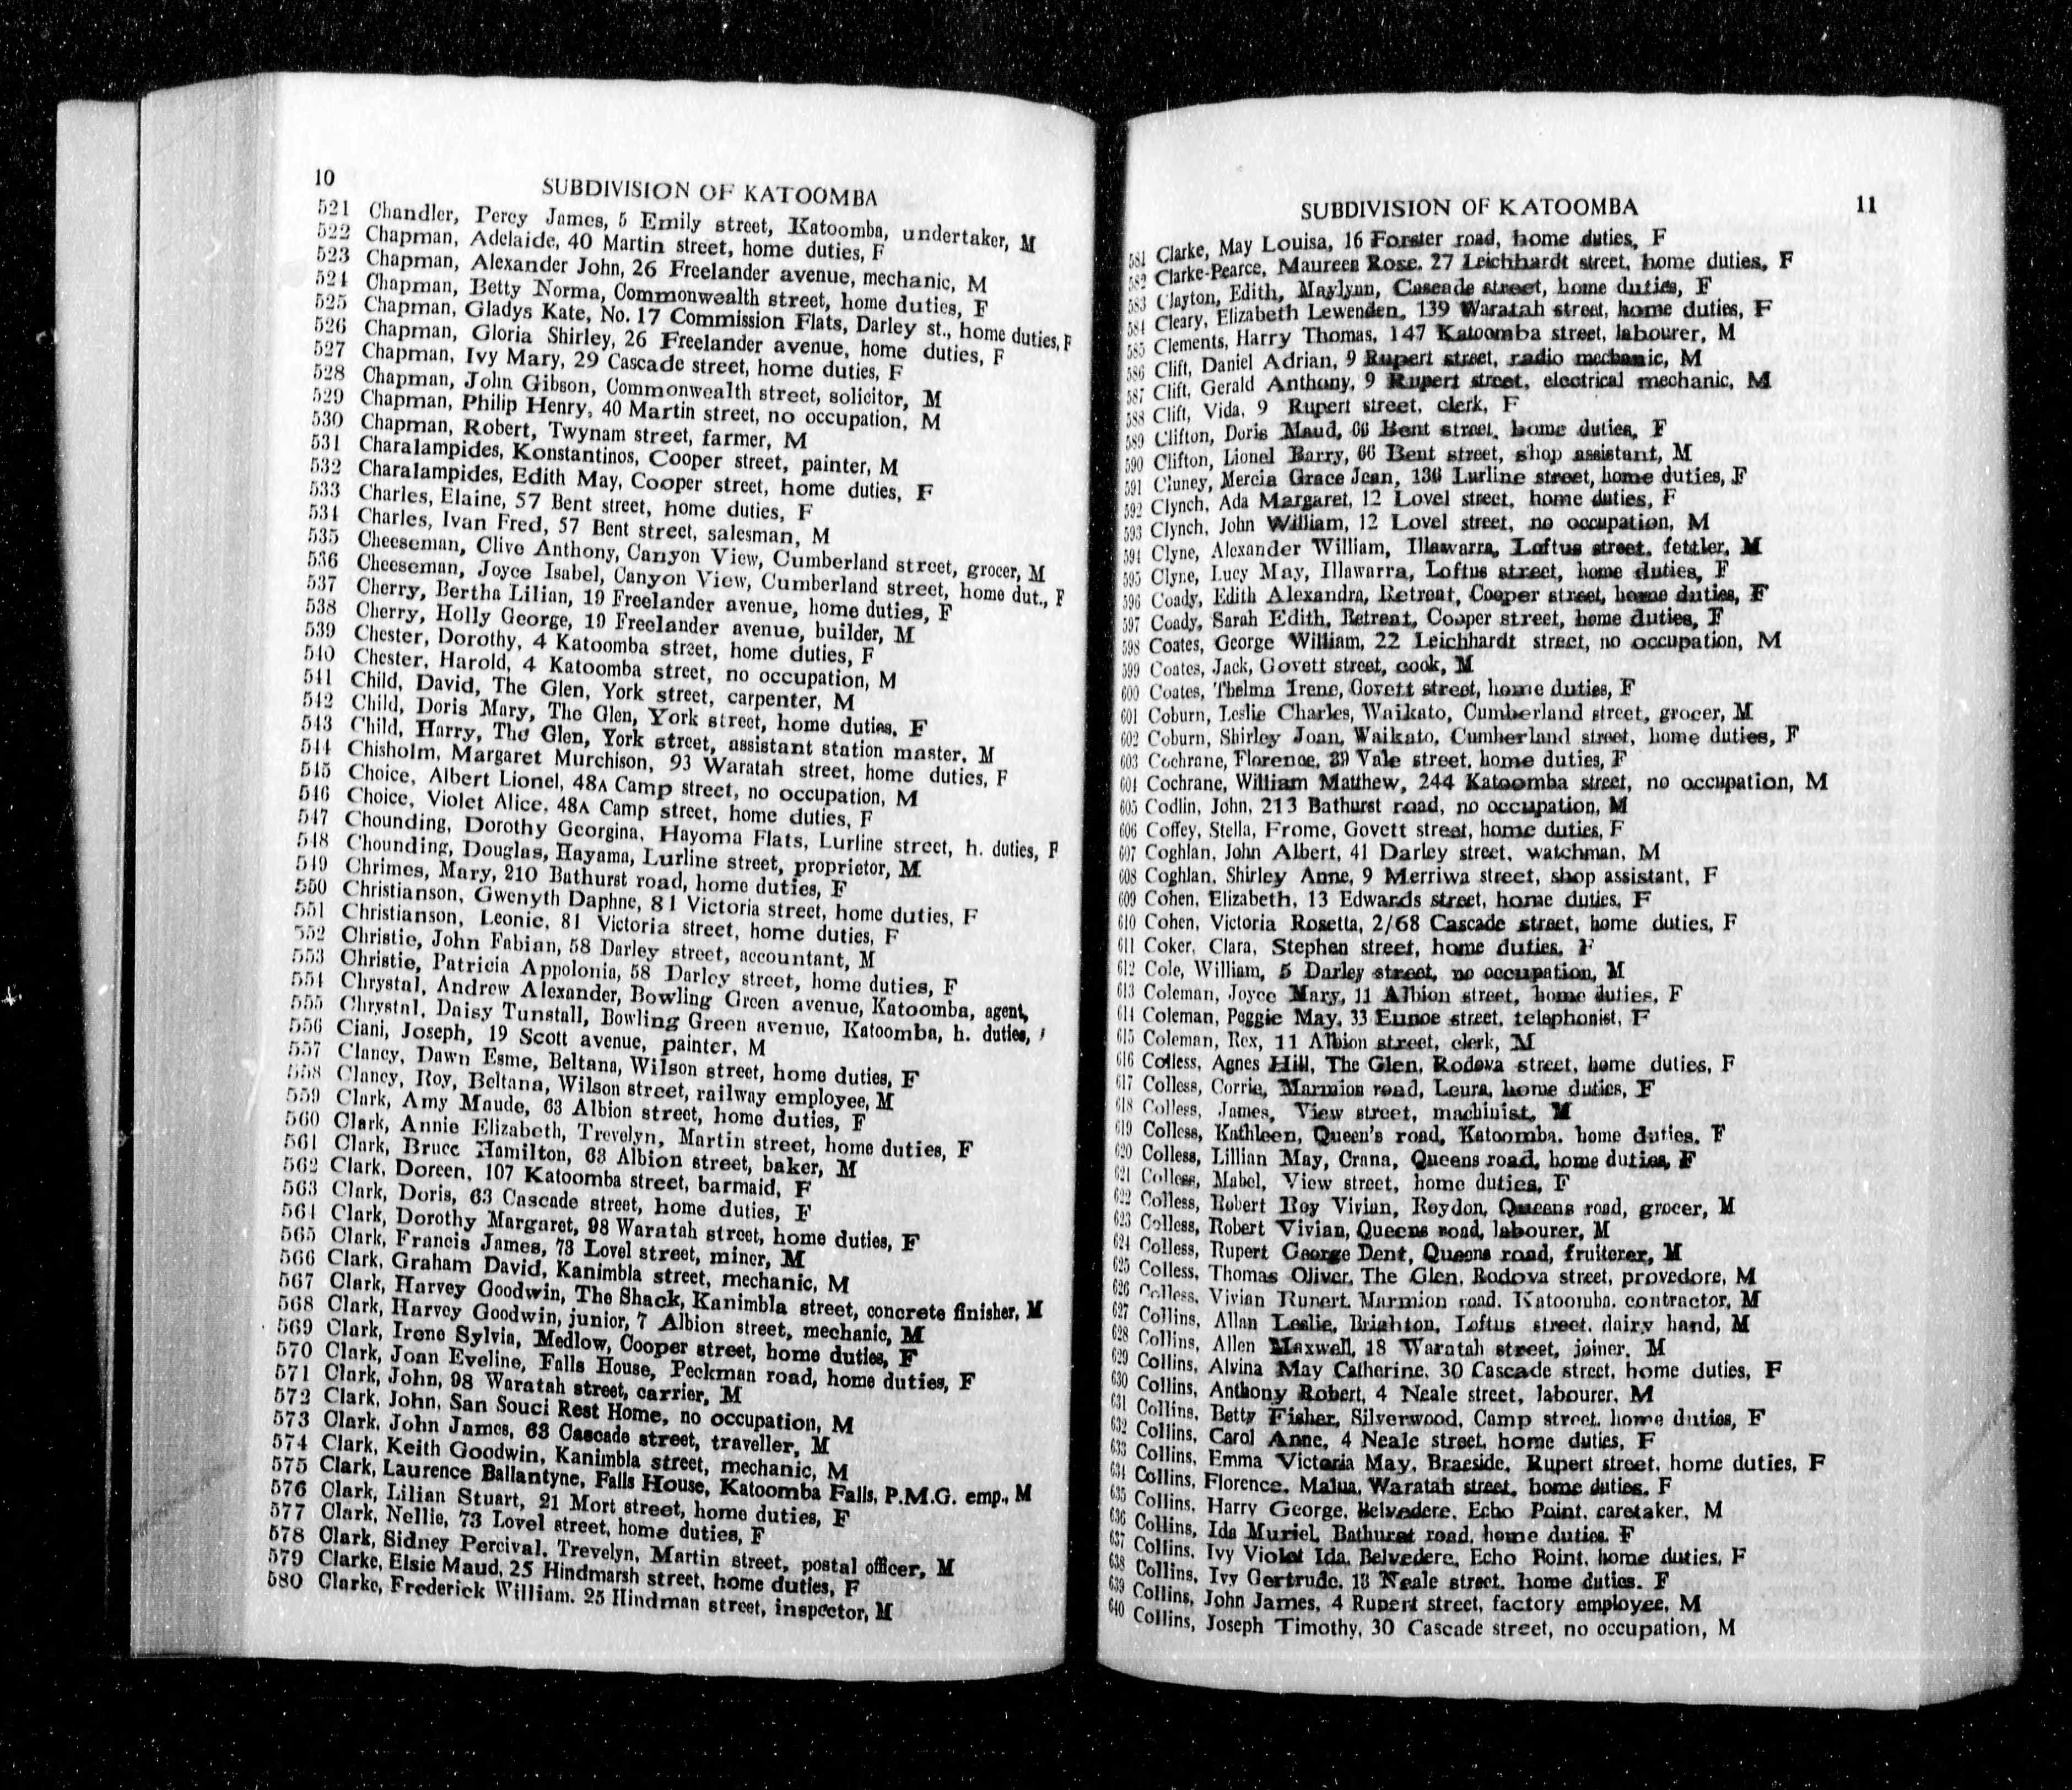 10
SUBDIVISION OF KATOOMBA
521 Chandler, Percy James, 5 Emily street, Katoomba, undertaker, M
522 Chapman, Adelaide, 40 Martin street, home duties, F
523 Chapman, Alexander John, 26 Freelander avenue, mechanic, M
524 Chapman, Betty Norma, Commonwealth street, home duties, F
525 Chapman, Gladys Kate, No. 17 Commission Flats, Darley st., home duties, F
526 Chapman, Gloria Shirley, 26 Freelander avenue, home duties, F
527 Chapman, Ivy Mary, 29 Cascade street, home duties, F
528 Chapman, John Gibson, Commonwealth street, solicitor, M
529 Chapman, Philip Henry, 40 Martin street, no occupation, M
530 Chapman, Robert, Twynam street, farmer, M
531 Charalampides, Konstantinos, Cooper street, painter, M
532 Charalampides, Edith May, Cooper street, home duties, F
533 Charles, Elaine, 57 Bent street, home duties, F
534 Charles, Ivan Fred, 57 Bent street, salesman, M
535 Cheeseman, Clive Anthony, Canyon View, Cumberland street, grocer, M
536 Cheeseman, Joyce Isabel, Canyon View, Cumberland street, home dut., F
537 Cherry, Bertha Lilian, 19 Freelander avenue, home duties, F
538 Cherry, Holly George, 19 Freelander avenue, builder, M
539 Chester, Dorothy, 4 Katoomba street, home duties, F
540 Chester, Harold, 4 Katoomba street, no occupation, M
541 Child, David, The Glen, York street, carpenter, M
542 Child, Doris Mary, The Glen, York street, home duties, F
543 Child, Harry, The Glen, York street, assistant station master, M
544 Chisholm, Margaret Murchison, 93 Waratah street, home duties, F
545 Choice, Albert Lionel, 48A Camp street, no occupation, M
546 Choice, Violet Alice, 48A Camp street, home duties, F
547 Chounding, Dorothy Georgina, Hayoma Flats, Lurline street, h. duties, F
548 Chounding, Douglas, Hayama, Lurline street, proprietor, M
549 Chrimes, Mary, 210 Bathurst road, home duties, F
550 Christianson, Gwenyth Daphne, 81 Victoria street, home duties, F
551 Christianson, Leonie, 81 Victoria street, home duties, F
552 Christie, John Fabian, 58 Darley street, accountant, M
553 Christie, Patricia Appolonia, 58 Darley street, home duties, F
554 Chrystal, Andrew Alexander, Bowling Green avenue, Katoomba, agent,
555 Chrystal, Daisy Tunstall, Bowling Green avenue, Katoomba, h. duties,
556 Ciani, Joseph, 19 Scott avenue, painter, M
557 Clancy, Dawn Esme, Beltana, Wilson street, home duties, F
558 Clancy, Roy, Beltana, Wilson street, railway employee, M
559 Clark, Amy Maude, 63 Albion street, home duties, F
560 Clark, Annie Elizabeth, Trevelyn, Martin street, home duties, F
561 Clark, Bruce Hamilton, 63 Albion street, baker, M
562 Clark, Doreen, 107 Katoomba street, barmaid, F
563 Clark, Doris, 63 Cascade street, home duties, F
564 Clark, Dorothy Margaret, 98 Waratah street, home duties, F
565 Clark, Francis James, 73 Lovel street, miner, M
566 Clark, Graham David, Kanimbla street, mechanic, M
567 Clark, Harvey Goodwin, The Shack, Kanimbla street, concrete finisher, M
568 Clark, Harvey Goodwin, junior, 7 Albion street, mechanic, M
569 Clark, Irene Sylvia, Medlow, Cooper street, home duties, F
570 Clark, Joan Eveline, Falls House, Peckman road, home duties, F
571 Clark, John, 98 Waratah street, carrier, M
572 Clark, John, San Souci Rest Home, no occupation, M
573 Clark, John James, 63 Cascade street, traveller, M
574 Clark, Keith Goodwin, Kanimbla street, mechanic, M
575 Clark, Laurence Ballantyne, Falls House, Katoomba Falls, P.M.G. emp., M
576 Clark, Lilian Stuart, 21 Mort street, home duties, F
577 Clark, Nellie, 73 Lovel street, home duties, F
578 Clark, Sidney Percival, Trevelyn, Martin street, postal officer, M
579 Clarke, Elsie Maud, 25 Hindmarsh street, home duties, F
580 Clarke, Frederick William, 25 Hindman street, inspector, M
SUBDIVISION OF KATOOMBA
11
581 Clarke, May Louisa, 16 Forster road, home duties, F
582 Clarke-Pearce, Maureen Rose, 27 Leichhardt street, home duties, F
583 Clayton, Edith, Maylynn, Cascade street, home duties, F
584 Cleary, Elizabeth Lewenden, 139 Waratah street, home duties, F
585 Clements, Harry Thomas, 147 Katoomba street, labourer, M
586 Clift, Daniel Adrian, 9 Rupert street, radio mechanic, M
587 Clift, Gerald Anthony, 9 Rupert street, electrical mechanic, M
588 Clift, Vida, 9 Rupert street, clerk, F
589 Clifton, Doris Maud, 66 Bent street, home duties, F
590 Clifton, Lionel Barry, 66 Bent street, shop assistant, M
591 Cluney, Mercia Grace Jean, 136 Lurline street, home duties, F
592 Clynch, Ada Margaret, 12 Lovel street, home duties, F
593 Clynch, John William, 12 Lovel street, no occupation, M
594 Clyne, Alexander William, Illawarra, Loftus street, fettler, M
595 Clyne, Lucy May, Illawarra, Loftus street, home duties, F
596 Coady, Edith Alexandra, Retreat, Cooper street, home duties, F
597 Coady, Sarah Edith, Retreat, Cooper street, home duties, F
598 Coates, George William, 22 Leichhardt street, no occupation, M
599 Coates, Jack, Govett street, cook, M
600 Coates, Thelma Irene, Govett street, home duties, F
601 Coburn, Leslie Charles, Waikato, Cumberland street, grocer, M
602 Coburn, Shirley Joan, Waikato, Cumberland street, home duties, F
603 Cochrane, Florence, 39 Vale street, home duties, F
604 Cochrane, William Matthew, 244 Katoomba street, no occupation, M
605 Codlin, John, 213 Bathurst road, no occupation, M
606 Coffey, Stella, Frome, Govett street, home duties, F
607 Coghlan, John Albert, 41 Darley street, watchman, M
608 Coghlan, Shirley Anne, 9 Merriwa street, shop assistant, F
609 Cohen, Elizabeth, 13 Edwards street, home duties, F
610 Cohen, Victoria Rosetta, 2/68 Cascade street, home duties, F
611 Coker, Clara, Stephen street, home duties, F
612 Cole, William, 5 Darley street, no occupation, M
613 Coleman, Joyce Mary, 11 Albion street, home duties, F
614 Coleman, Peggie May, 33 Eunoe street, telephonist, F
615 Coleman, Rex, 11 Albion street, clerk, M
616 Colless, Agnes Hill, The Glen, Rodova street, home duties, F
617 Colless, Corrie, Marmion road, Leura, home duties, F
618 Colless, James, View street, machinist, M
619 Colless, Kathleen, Queen's road, Katoomba, home duties, F
620 Colless, Lillian May, Crana, Queens road, home duties, F
621 Colless, Mabel, View street, home duties, F
622 Colless, Robert Roy Vivian, Roydon, Queens road, grocer, M
623 Colless, Robert Vivian, Queens road, labourer, M
624 Colless, Rupert George Dent, Queens road, fruiterer, M
625 Colless, Thomas Oliver, The Glen, Rodova street, provedore, M
626 Colless, Vivian Rupert, Marmion road, Katoomba, contractor, M
627 Collins, Allan Leslie, Brighton, Loftus street, dairy hand, M
628 Collins, Allen Maxwell, 18 Waratah street, joiner, M
629 Collins, Alvina May Catherine, 30 Cascade street, home duties, F
630 Collins, Anthony Robert, 4 Neale street, labourer, M
631 Collins, Betty Fisher, Silverwood, Camp street, home duties, F
632 Collins, Carol Anne, 4 Neale street, home duties, F
633 Collins, Emma Victoria May, Braeside, Rupert street, home duties, F
634 Collins, Florence, Malua, Waratah street, home duties, F
635 Collins, Harry George, Belvedere, Echo Point, caretaker, M
636 Collins, Ida Muriel, Bathurst road, home duties, F
637 Collins, Ivy Violet Ida, Belvedere, Echo Point, home duties, F
638 Collins, Ivy Gertrude, 13 Neale street, home duties, F
639 Collins, John James, 4 Rupert street, factory employee, M
640 Collins, Joseph Timothy, 30 Cascade street, no occupation, M